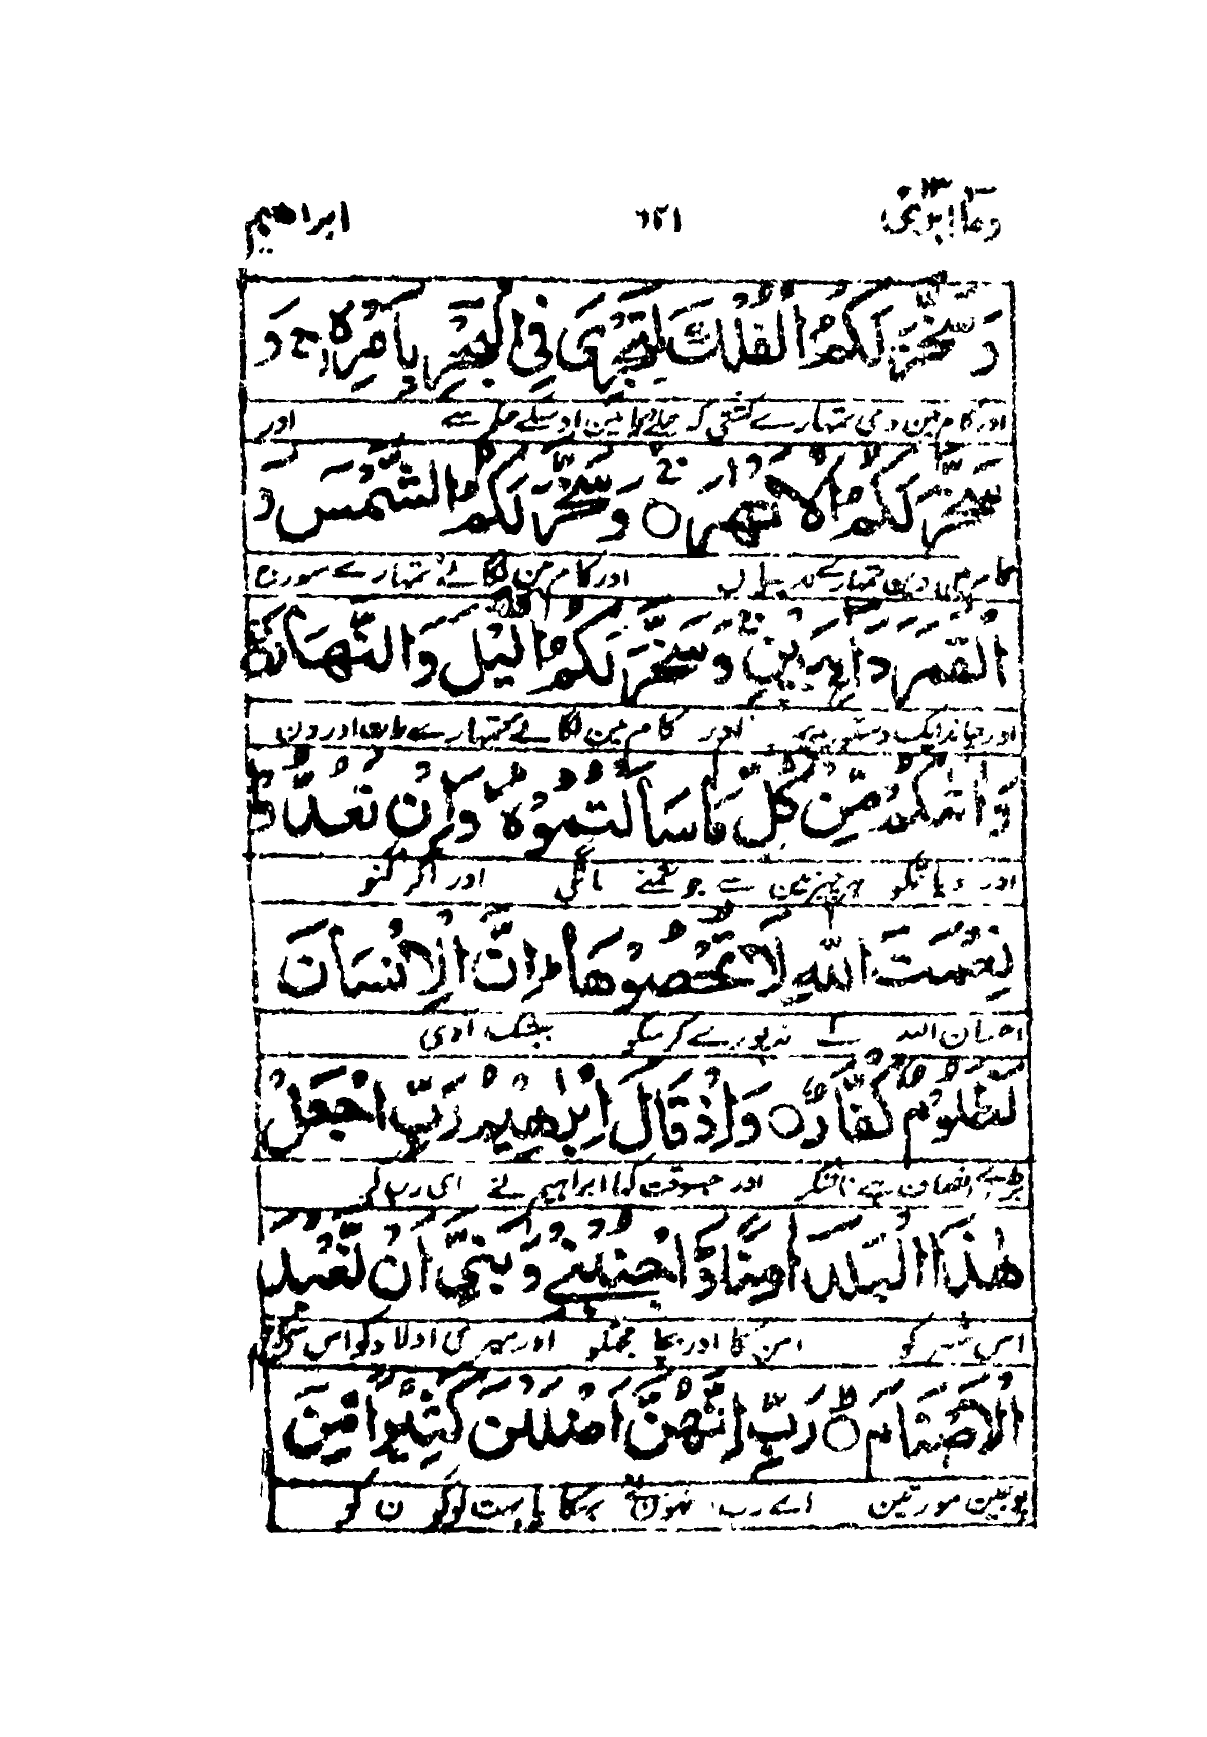 وما ابرئ ١٣ ٦٢١ ابراهيم
وَسَخَّرَ لَكُمُ الْفُلْكَ لِتَجْرِيَ فِي الْبَحْرِ بِاَمْرِهٖ ج وَ
اور کام مین دی تمہارے کشتی کہ چلے دریا مین اوسکے حکم سے اور
سَخَّرَ لَكُمُ الْاَنْهٰرَ ○ وَسَخَّرَ لَكُمُ الشَّمْسَ وَ
کام مین دین تمہارے ندیاں اور کام مین لگائے تمہارے سورج
الْقَمَرَ دَآئِبَيْنِ ج وَسَخَّرَ لَكُمُ الَّيْلَ وَالنَّهَارَ
اور چاند ایک دستور پر اور کام مین لگائے تمہارے رات اور دن
وَاٰتٰىكُمْ مِّنْ كُلِّ مَا سَاَلْتُمُوْهُ ط وَاِنْ تَعُدُّوْا
اور دیا تمکو ہر چیز مین سے جو تمنے مانگی اور اگر گنو
نِعْمَتَ اللّٰهِ لَا تُحْصُوْهَا ط اِنَّ الْاِنْسَانَ
احسان اللہ کے نہ پورے کر سکو بیشک آدمی
لَظَلُوْمٌ كَفَّارٌ ○ وَاِذْ قَالَ اِبْرٰهِيْمُ رَبِّ اجْعَلْ
بڑا بے انصاف ہے ناشکر اور جسوقت کہا ابراہیم نے ای رب کر
هٰذَا الْبَلَدَ اٰمِنًا وَّاجْنُبْنِيْ وَبَنِيَّ اَنْ نَّعْبُدَ
اس شہر کو امن کا اور بچا مجھکو اور میری اولاد کو اس سے کہ
الْاَصْنَامَ ○ ط رَبِّ اِنَّهُنَّ اَضْلَلْنَ كَثِيْرًا مِّنَ
پوجین مورتین اے رب انہون نے بہکایا بہت لوگون کو